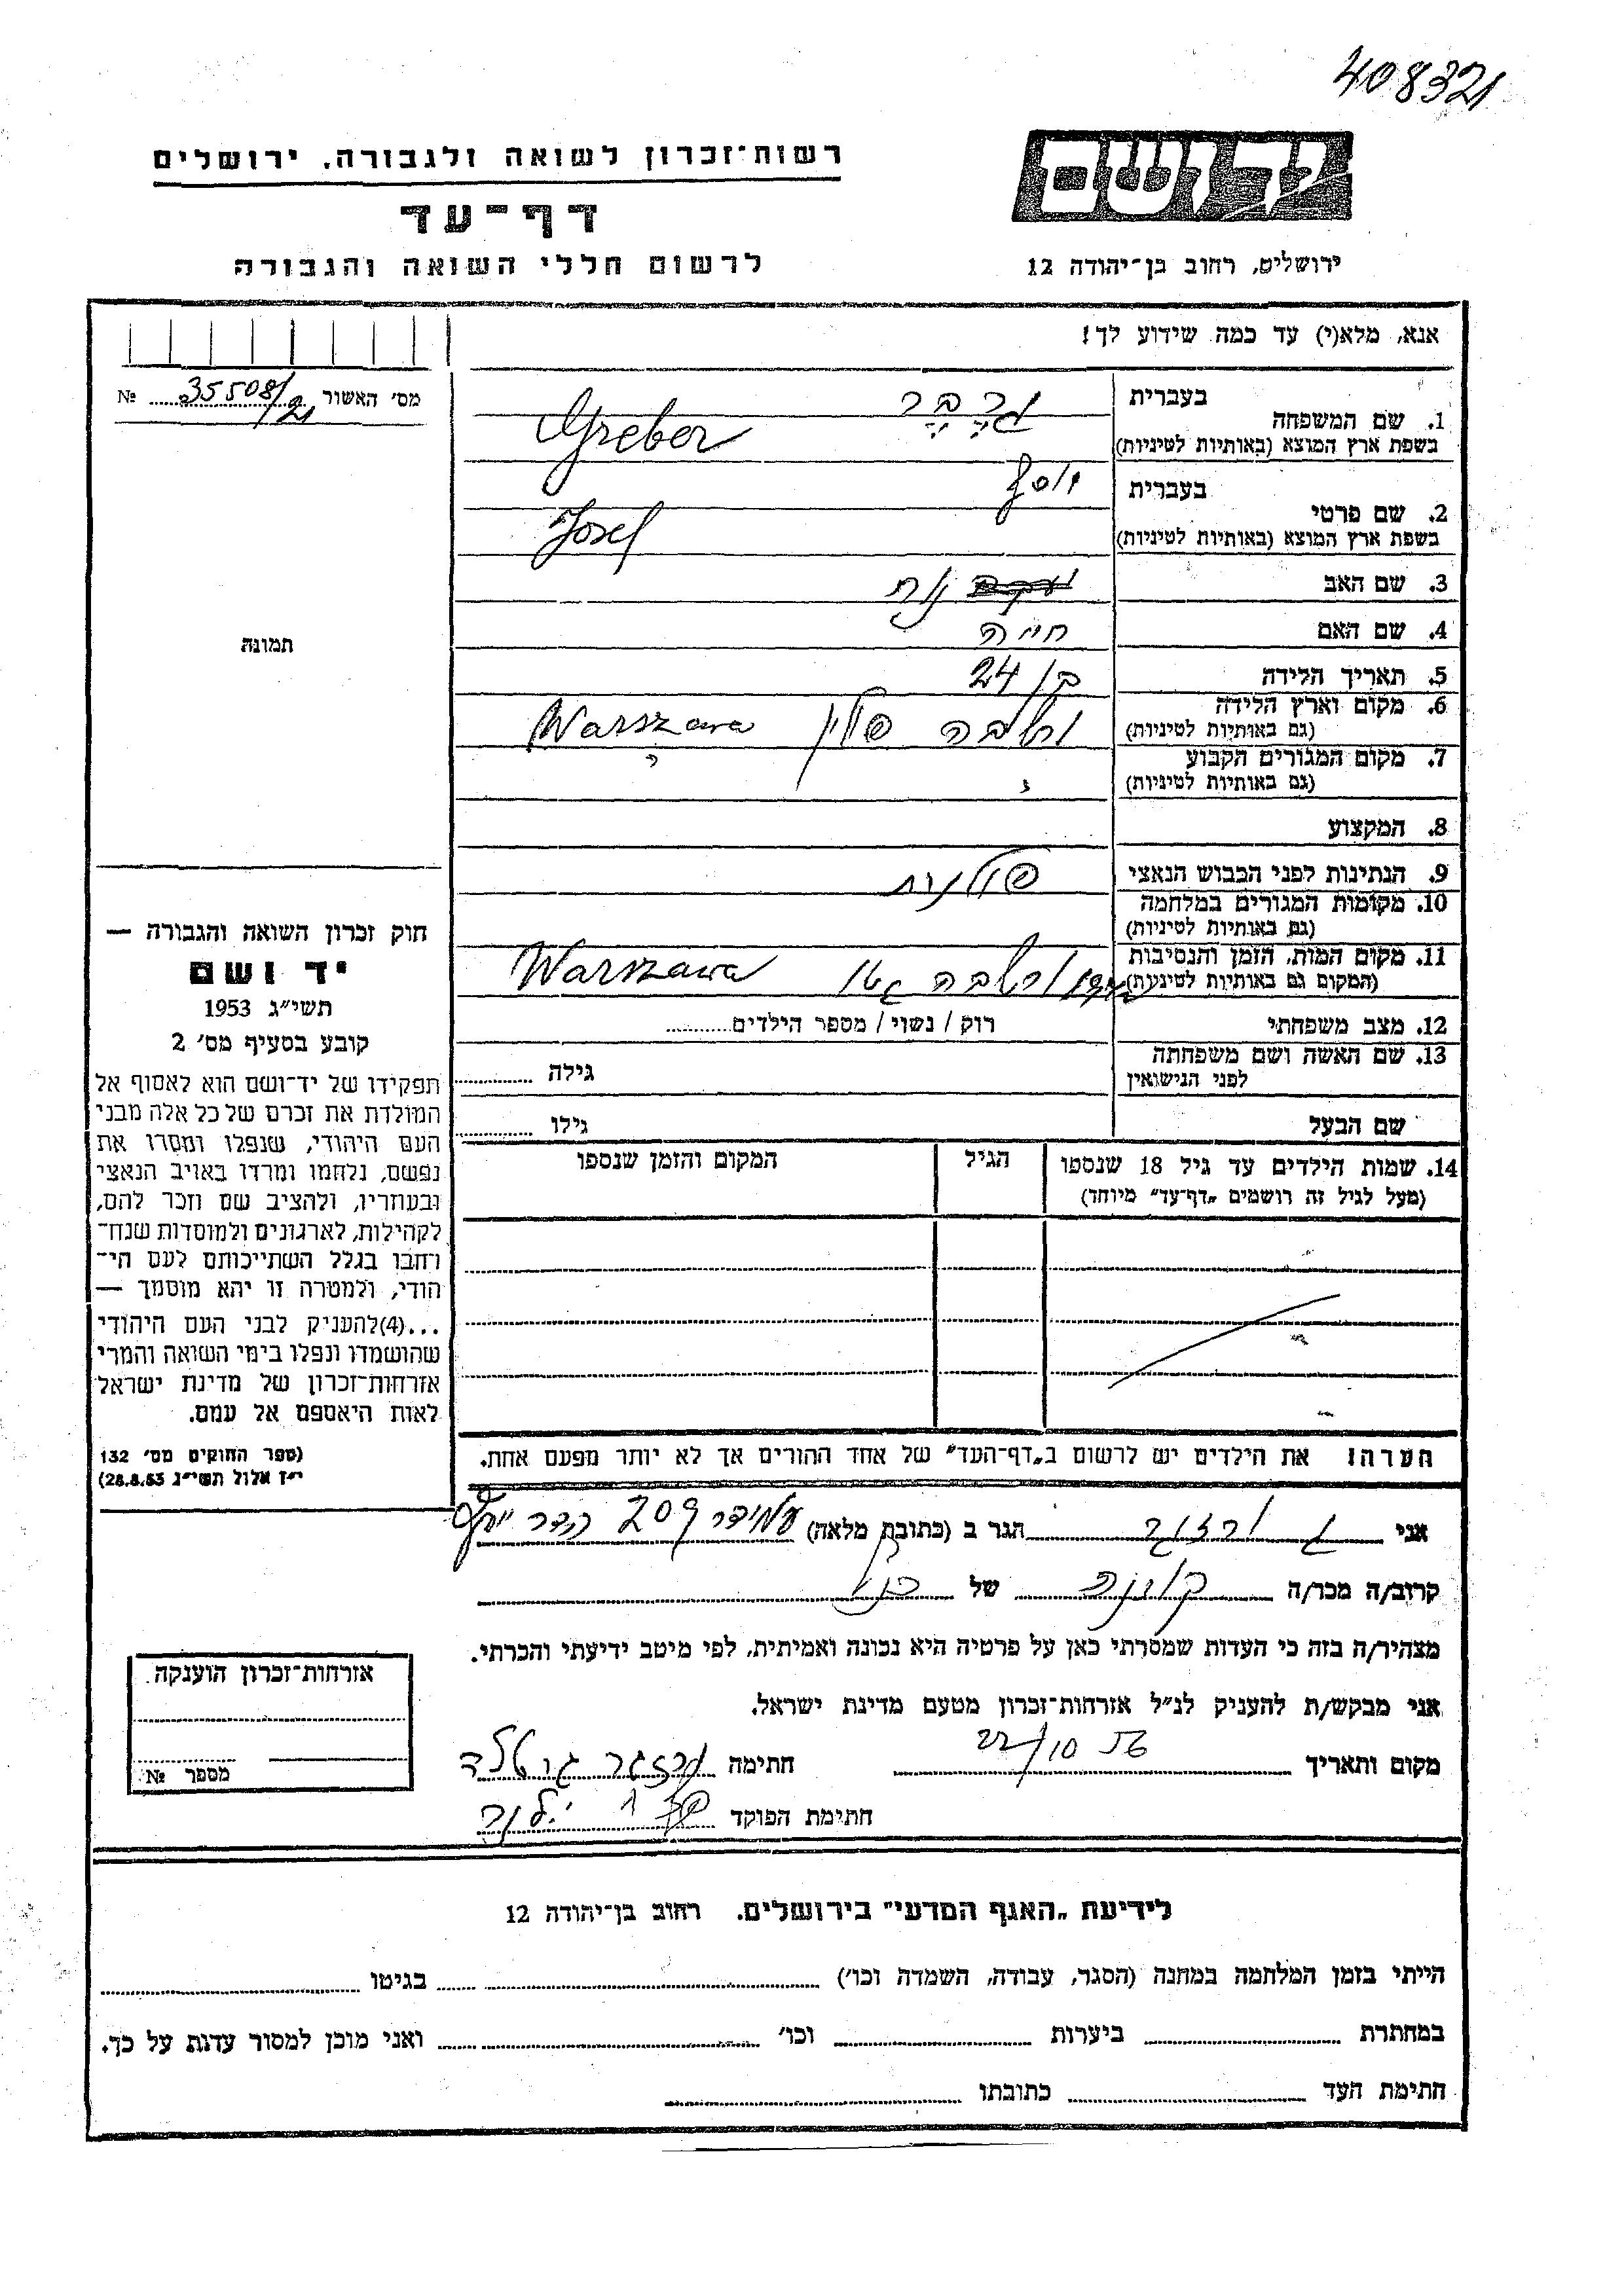 408321
יד ושם
רשות־זכרון לשואה ולגבורה. ירושלים
דף־עד
לרשום חללי השואה והגבורה
ירושלים, רחוב בן־יהודה 12
אנא, מלא(י) עד כמה שידוע לך!
מס׳ האשור 35508/21 №
בעברית גרבר
1. שם המשפחה
בשפת ארץ המוצא (באותיות לטיניות) Greber
בעברית יוסף
2. שם פרטי
בשפת ארץ המוצא (באותיות לטיניות) Josef
3. שם האב נח
4. שם האם חיה
5. תאריך הלידה בן 24
6. מקום וארץ הלידה
(גם באותיות לטיניות) ורשבה פולין Warszawa
7. מקום המגורים הקבוע
(גם באותיות לטיניות)
8. המקצוע
9. הנתינות לפני הכבוש הנאצי פולנית
10. מקומות המגורים במלחמה
(גם באותיות לטיניות)
11. מקום המות, הזמן והנסיבות
(המקום גם באותיות לטיניות) ורשבה גטו Warszawa
12. מצב משפחתי רוק / נשוי / מספר הילדים
13. שם האשה ושם משפחתה
לפני הנישואין גילה
שם הבעל גילו
תמונה
חוק זכרון השואה והגבורה —
יד ושם
תשי״ג 1953
קובע בסעיף מס׳ 2
תפקידו של יד־ושם הוא לאסוף אל
המולדת את זכרם של כל אלה מבני
העם היהודי, שנפלו ומסרו את
נפשם, נלחמו ומרדו באויב הנאצי
ובעוזריו, ולהציב שם וזכר להם,
לקהילות, לארגונים ולמוסדות שנח־
רחבו בגלל השתייכותם לעם הי־
הודי, ולמטרה זו יהא מוסמך —
...(4) להעניק לבני העם היהודי
שהושמדו ונפלו בימי השואה והמרי
אזרחות־זכרון של מדינת ישראל
לאות היאספם אל עמם.
(ספר החוקים מס׳ 132
י״ז אלול תשי״ג 28.8.53)
14. שמות הילדים עד גיל 18 שנספו הגיל המקום והזמן שנספו
(מעל לגיל זה רושמים „דף־עד״ מיוחד)
הערה: את הילדים יש לרשום ב„דף־העד״ של אחד ההורים אך לא יותר מפעם אחת.
אני הגר ב (כתובת מלאה) 209
קרוב/ה מכר/ה של
מצהיר/ה בזה כי העדות שמסרתי כאן על פרטיה היא נכונה ואמיתית, לפי מיטב ידיעתי והכרתי.
אני מבקש/ת להעניק לנ״ל אזרחות־זכרון מטעם מדינת ישראל.
מקום ותאריך חתימה
חתימת הפוקד
אזרחות־זכרון הוענקה
מספר №
לידיעת „האגף המדעי״ בירושלים. רחוב בן־יהודה 12
הייתי בזמן המלחמה במחנה (הסגר, עבודה, השמדה וכו׳) בגיטו
במחתרת ביערות וכו׳ ואני מוכן למסור עדות על כך.
חתימת העד כתובתו